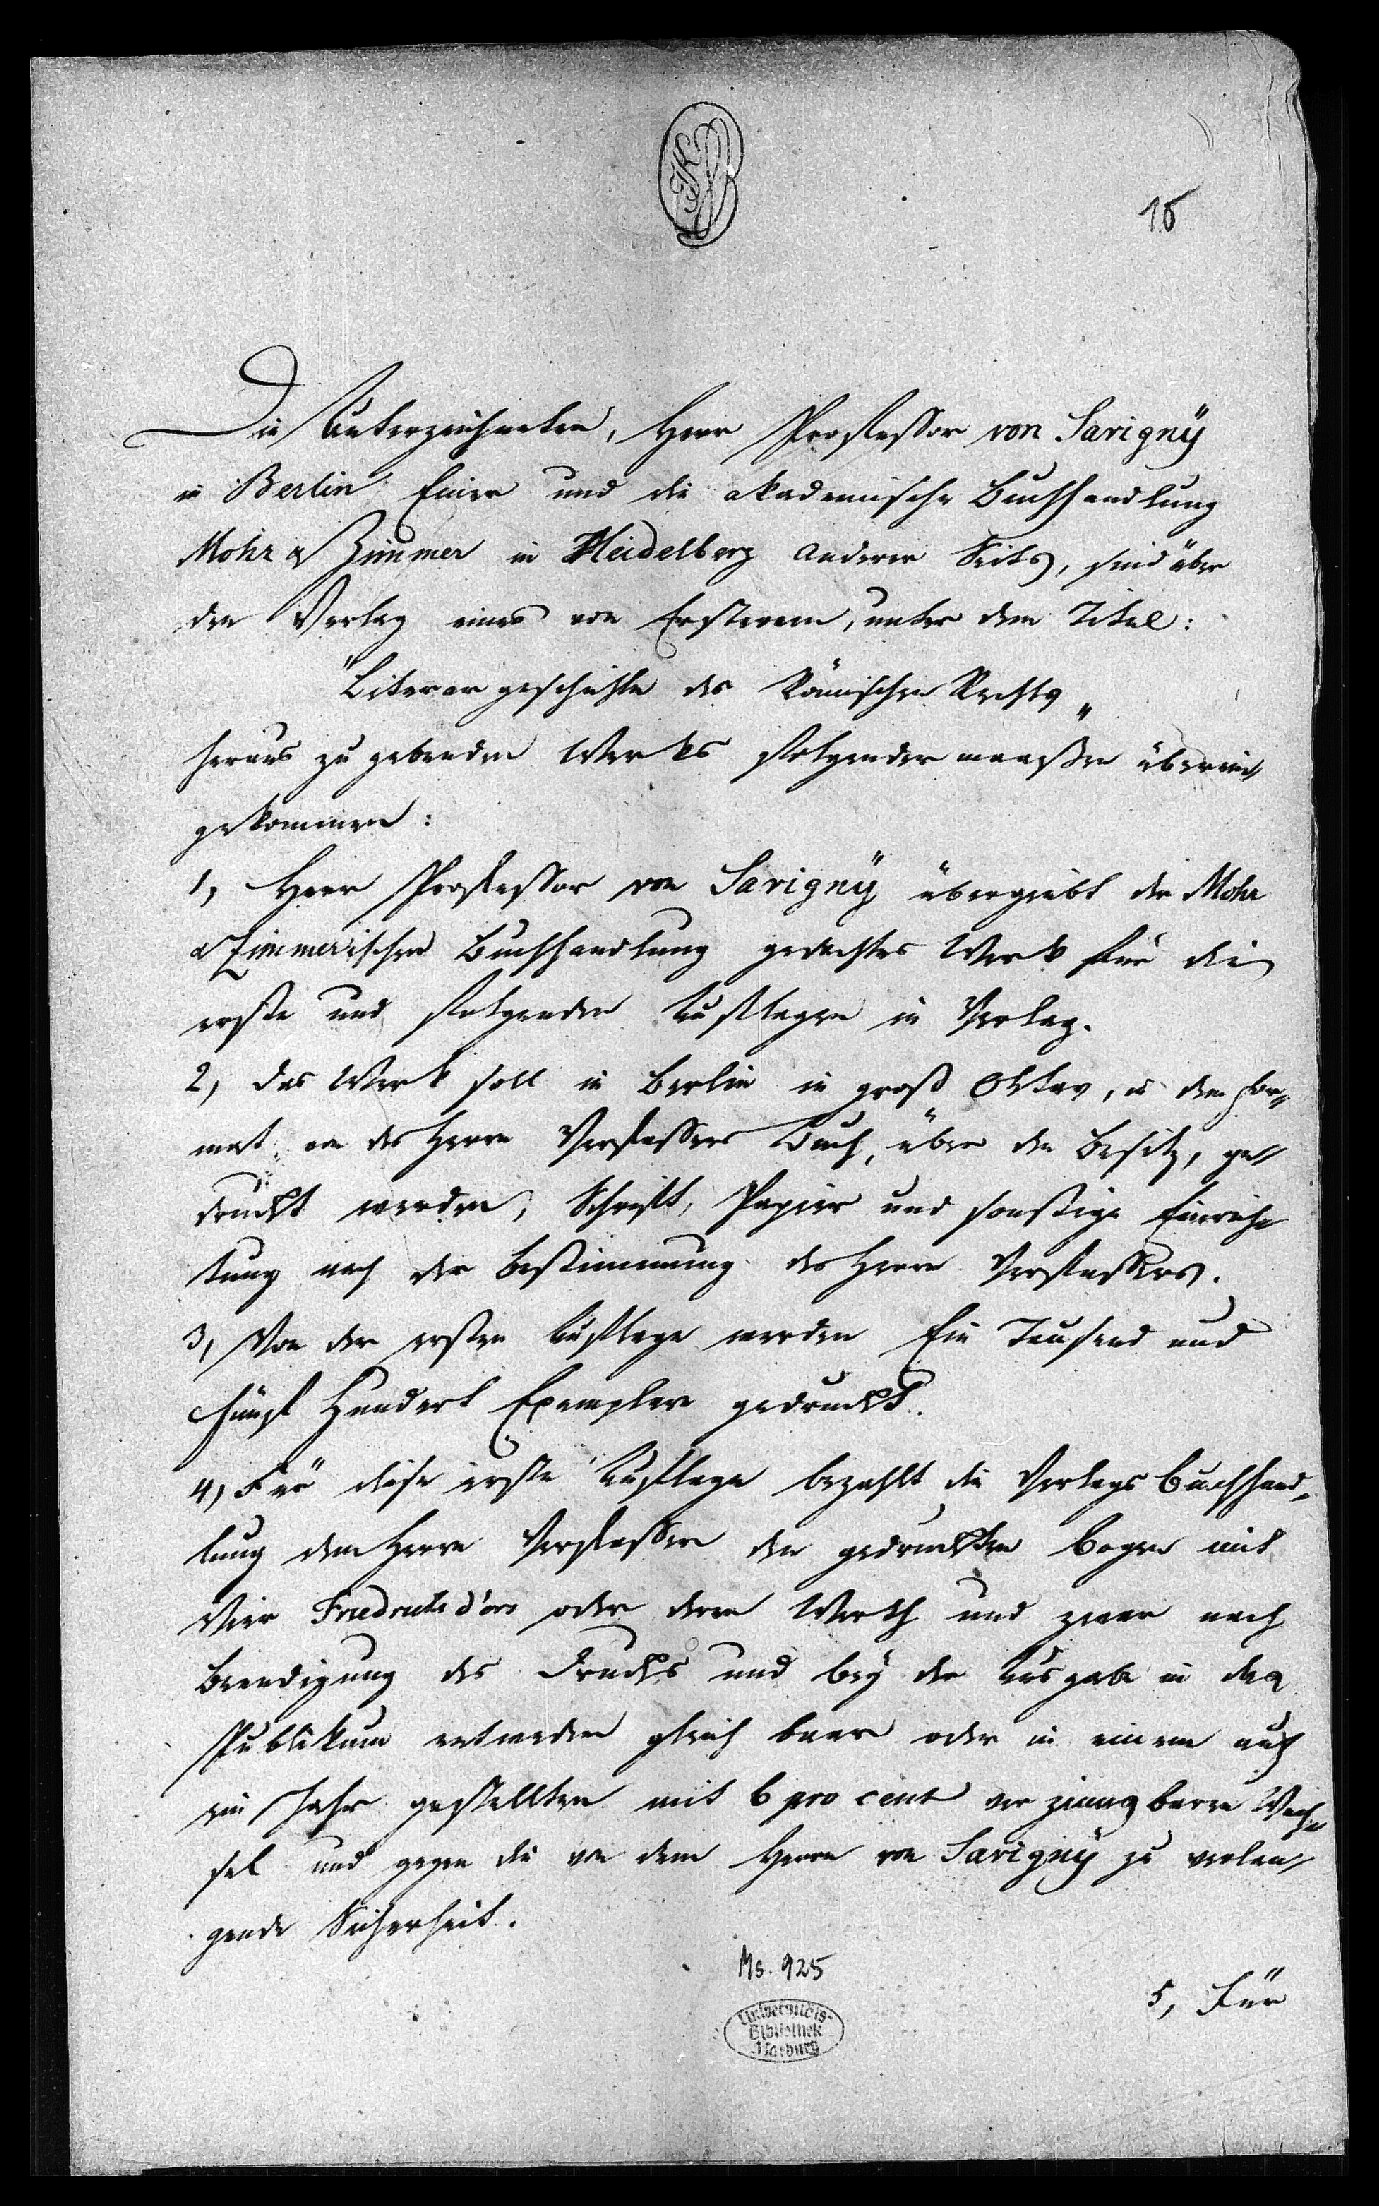 15
Die Unterzeichneten, Herr Professor von Savigny
in Berlin Einer und die akademische Buchhandlung
Mohr & Zimmer in Heidelberg anderer Seits, sind über
den Verlag eines von Ersterem, unter dem Titel:
"Literargeschichte des Römischen Rechts"
heraus zu gebenden Werks folgendermaaßen überein
gekommen:
1, Herr Professor von Savigny übergiebt der Mohr
& Zimmerischen Buchhandlung gedachtes Werk für die
erste und folgenden Auflagen in Verlag.
2, Das Werk soll in Berlin in groß Oktav, in dem For-
mat von des Herrn Verfassers Buch, über den Besitz, ge-
druckt werden, Schrift, Papier und sonstige Einrich-
tung nach der Bestimmung des Herrn Verfassers.
3, Von der ersten Auflage werden Ein Tausend und
fünf Hundert Exemplare gedruckt.
4, Für diese erste Auflage bezahlt die Verlags buchhand-
lung dem Herrn Verfasser den gedruckten Bogen mit
Vier Friedrichs d'ors oder deren Werth und zwar nach
Beendigung des Drucks und bey der Ausgabe in das
Publikum entweder gleich baar oder in einem auf
ein Jahr gestellten mit 6 pro cent verzinnsbaren Wech-
sel und gegen die von dem Herrn von Savigny zu verlan-
gende Sicherheit.
Ms. 925
5, Für
Universitäts-
Bibliothek
Marburg